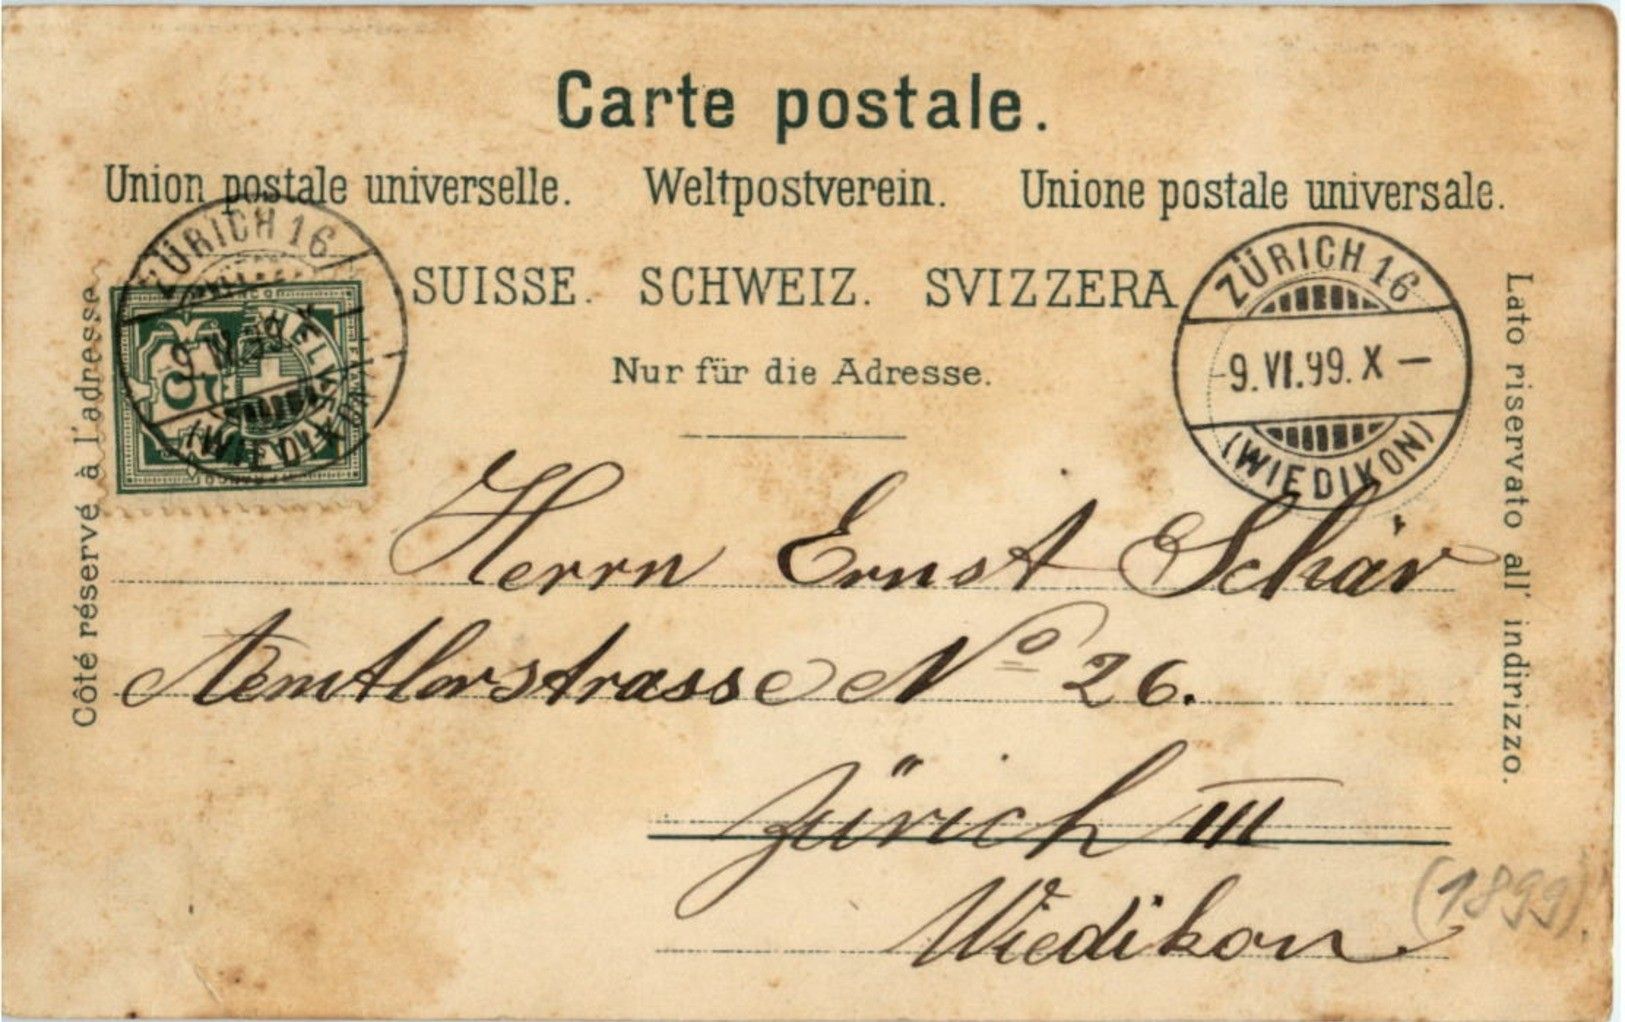 Carte postale.
Union postale universelle. Weltpostverein. Unione postale universale.
SUISSE. SCHWEIZ. SVIZZERA
Nur für die Adresse.
Côté réservé à l'adresse
Lato riservato all' indirizzo.
ZÜRICH 16
HELVETIA
5
(WIEDIKON)
ZÜRICH 16
-9.VI.99.X-
(WIEDIKON)
Herrn Ernst Schär
Aemtlerstrasse No 26.
Zürich III
Wiedikon.
(1899)